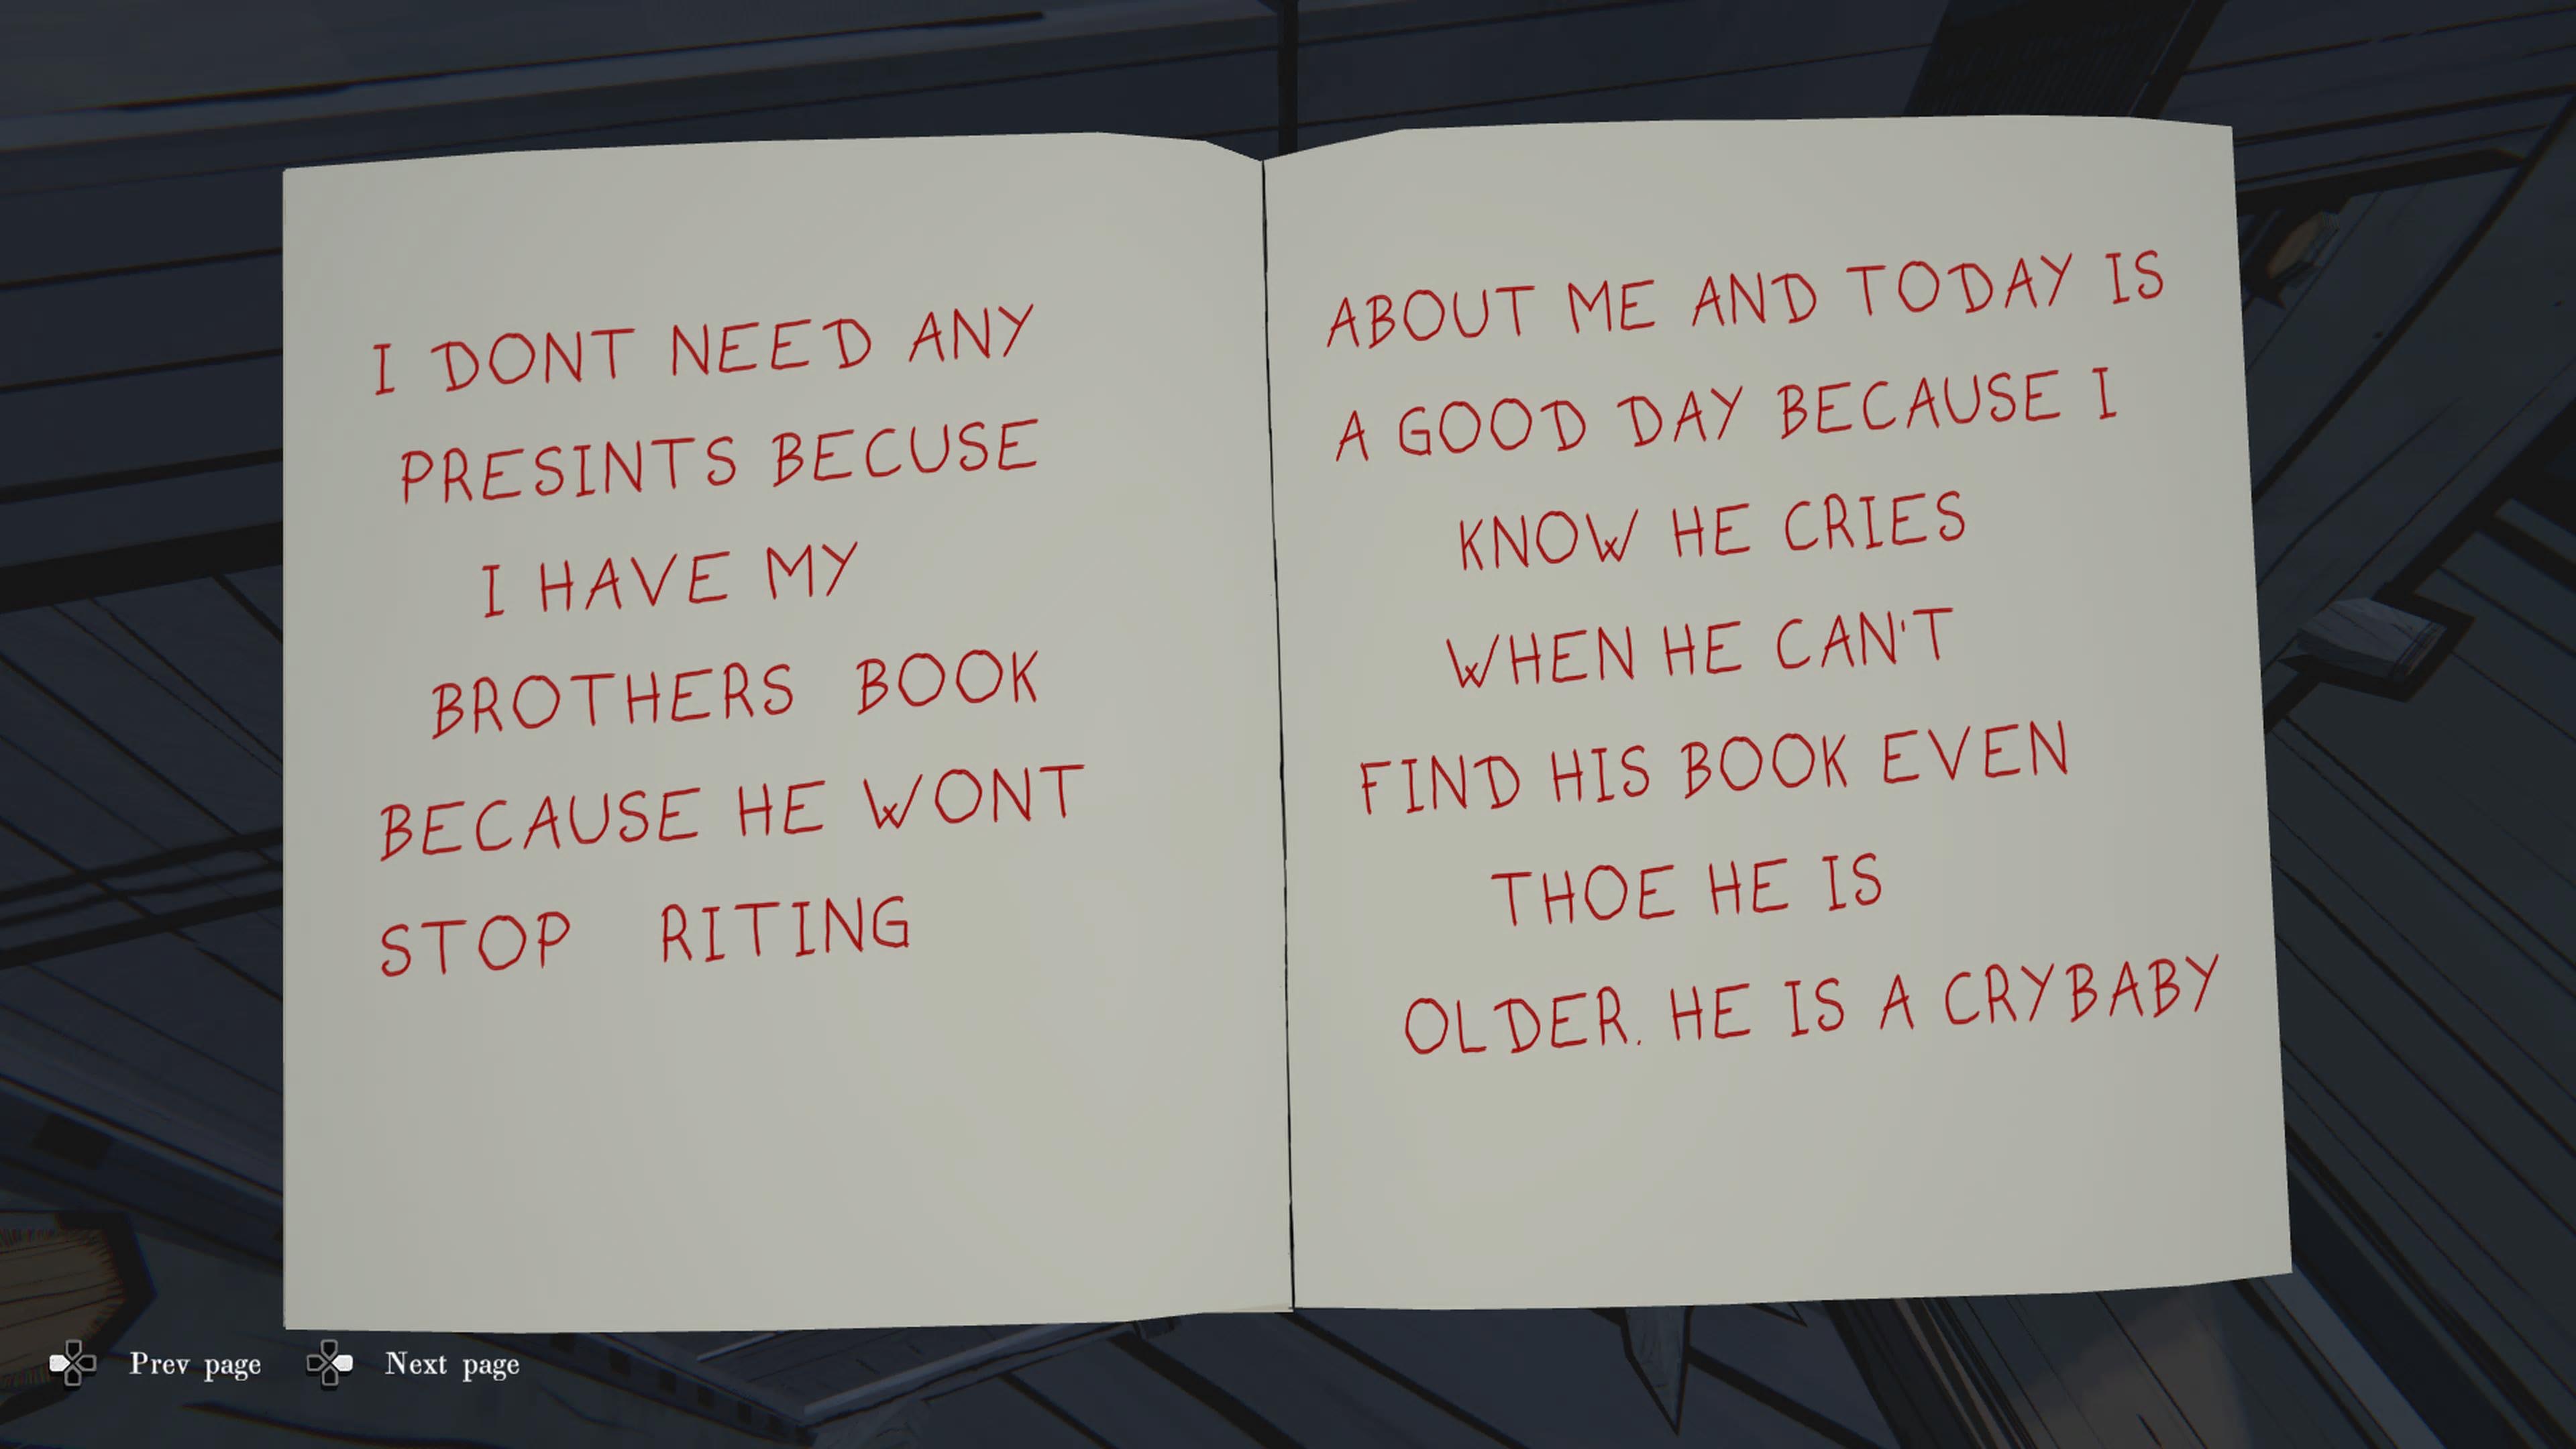 I DONT NEED ANY
PRESINTS BECUSE
I HAVE MY
BROTHERS BOOK
BECAUSE HE WONT
STOP RITING
ABOUT ME AND TODAY IS
A GOOD DAY BECAUSE I
KNOW HE CRIES
WHEN HE CAN'T
FIND HIS BOOK EVEN
THOE HE IS
OLDER. HE IS A CRYBABY
Prev page
Next page